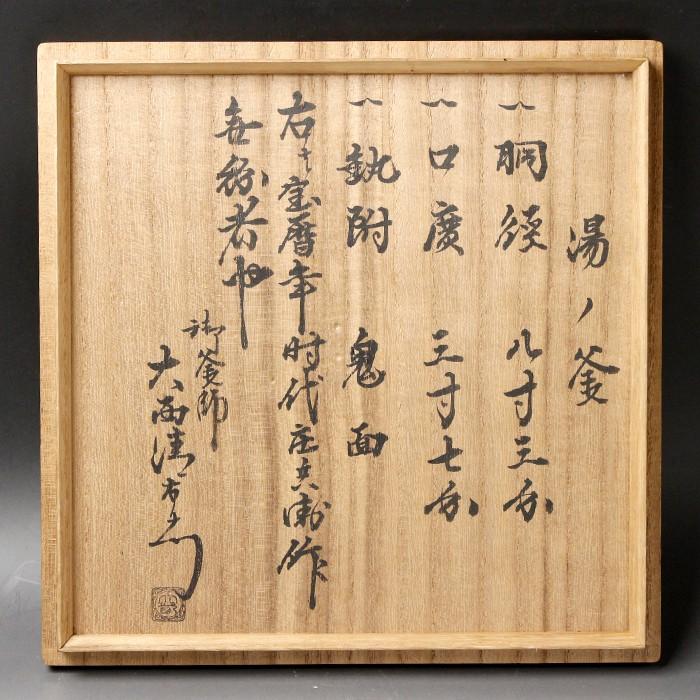 湯ノ釜
一胴径 八寸三分
一口廣 三寸七分
一執附 鬼面
右者宝暦年時代庄兵衛作
無紛者也
御釜師
大西清右衛門